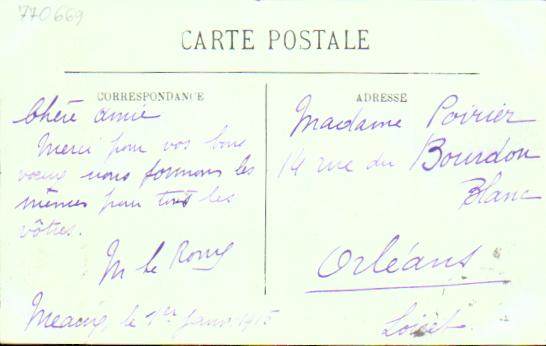 770669
CARTE POSTALE
CORRESPONDANCE
Chère amie
Merci pour vos bons
vœux nous formons les
mêmes pour tous les
vôtres.
M le
le 1er Janv 1915
ADRESSE
Madame Poirier
14 rue du Bourdon
Blanc
Orléans
Loiret